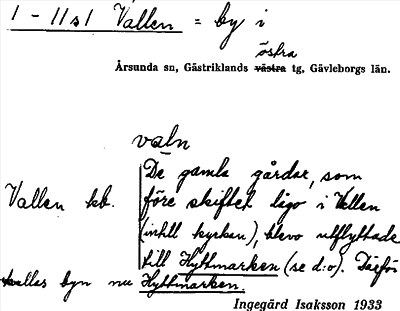 1 - 11 s 1 Vallen = by i
östra
Årsunda sn, Gästriklands västra tg, Gävleborgs län.
valn
De gamla gårdar, som
Vallen kb. före skiftet lågo i Vallen
(intill kyrkan), blevo utflyttade
till Hyttmarken (se d:o). Därför
kallas byn nu Hyttmarken.
Ingegärd Isaksson 1933